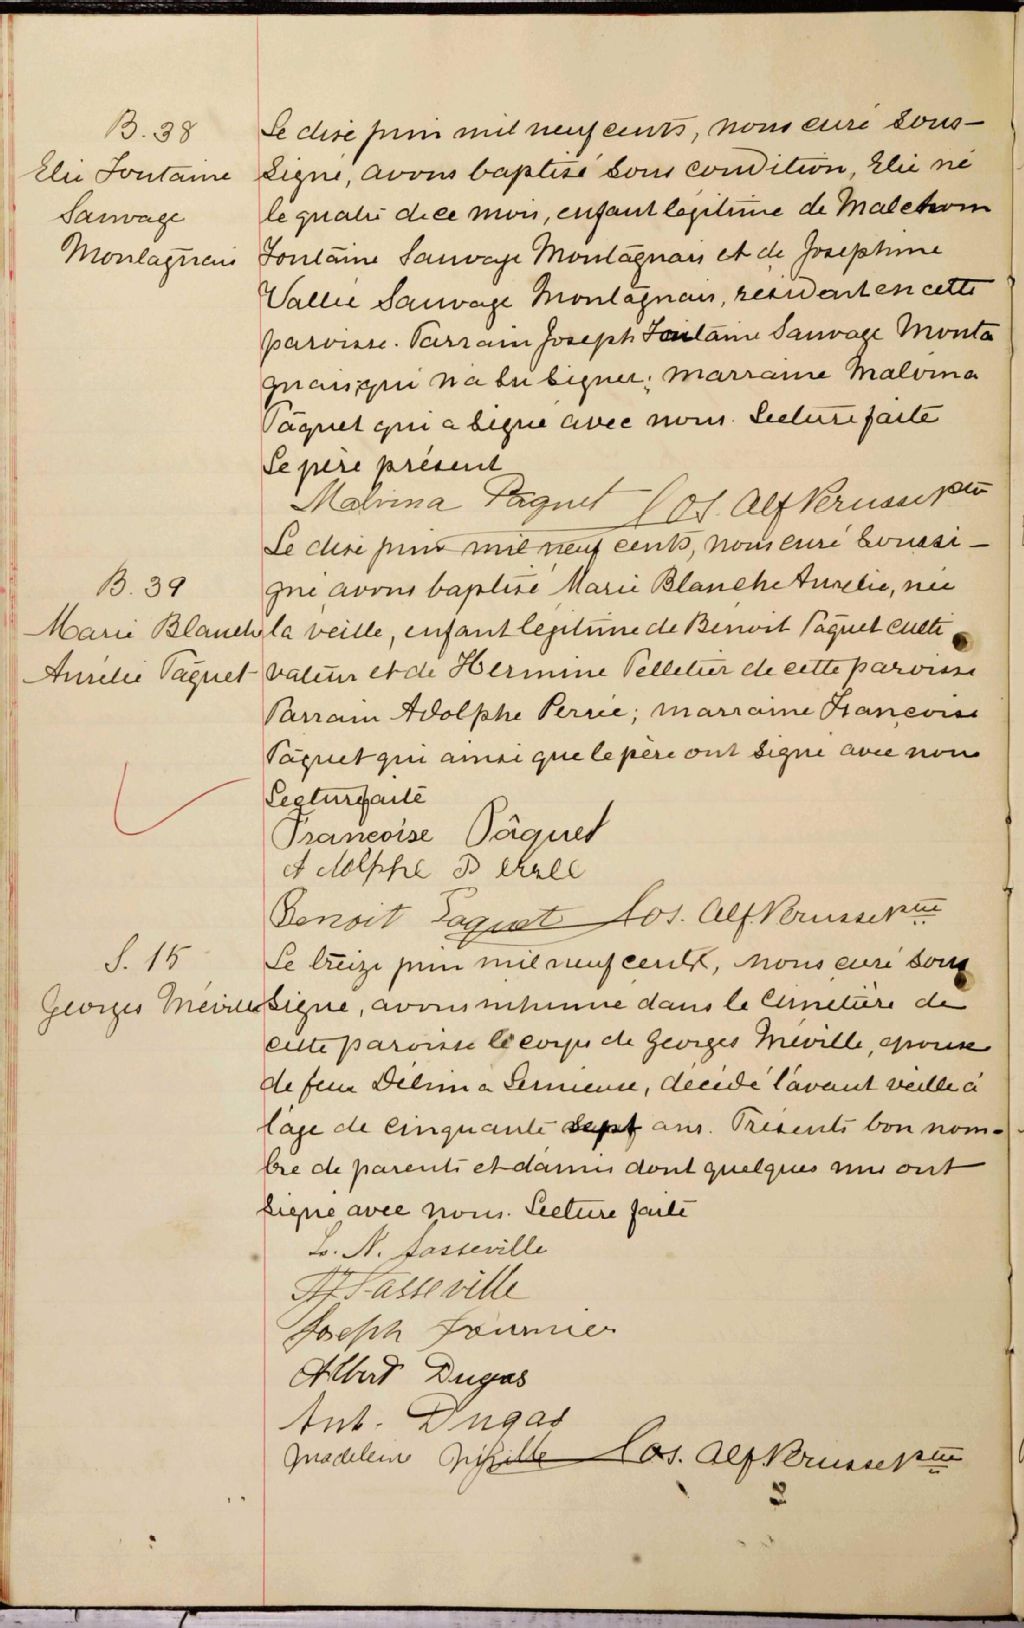 B. 38
Elie Fontaine
Sauvage
Montagnais
Le dix juin mil neuf cents, nous curé sous-
signé, avons baptisé sous condition, Elie né
le quatre de ce mois, enfant légitime de Malchom
Fontaine Sauvage Montagnais et de Josephine
Vallée Sauvage Montagnais, résidant en cette
paroisse. Parrain Joseph Fontaine Sauvage Monta
gnais, qui n'a su signer; marraine Malvina
Pâquet qui a signé avec nous. Lecture faite
Le père présent
Malvina Pâquet Jos. Alf Verusse ptre
B. 39
Marie Blanche
Aurélie Pâquet
Le dix juin mil neuf cents, nous curé soussi-
gné avons baptisé Marie Blanche Aurélie, née
la veille, enfant légitime de Benoit Pâquet culti
vateur et de Hermine Pelletier de cette paroisse
Parrain Adolphe Perrée; marraine Françoise
Pâquet qui ainsi que le père ont signé avec nous
Lecture faite
Françoise Pâquet
Adolphe Perrée
Benoit Paquet Jos. Alf. Verusse ptre
S. 15
Georges Méville
Le treize juin mil neuf cents, nous curé sous
signé, avons inhumé dans le cimetière de
cette paroisse le corps de Georges Méville, epoux
de feue Délima Lemieux, décédé l'avant veille à
l'âge de cinquante sept ans. Présents bon nom-
bre de parents et d'amis dont quelques uns ont
signé avec nous. Lecture faite
L. N. Lasseville
Lasseville
Joseph Fournier
Albert Dugas
Ant. Dugas
Madeleine Jos. Alf Verusse ptre